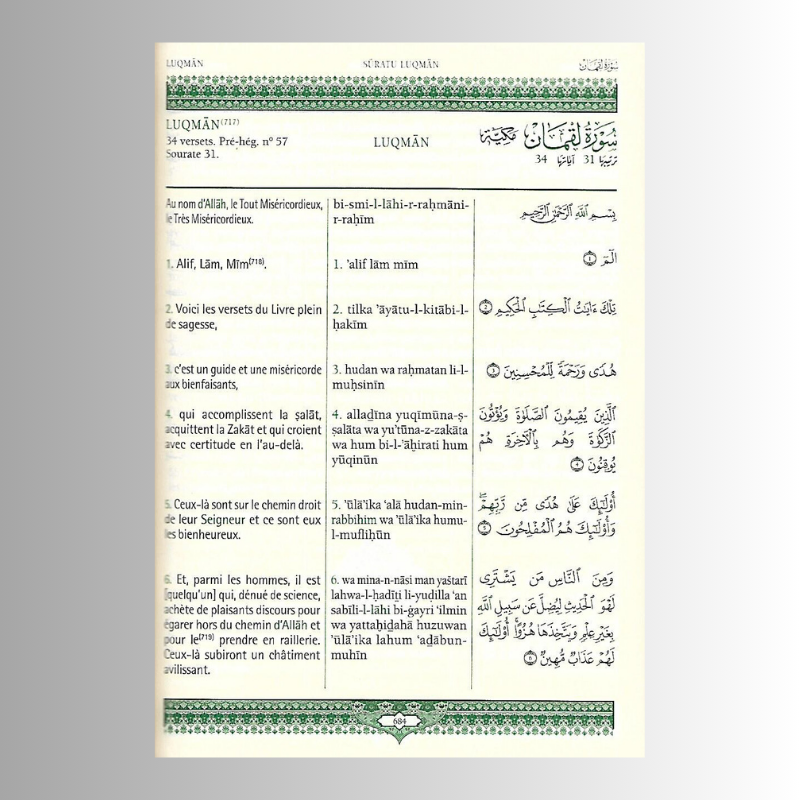 LUQMĀN SŪRATU LUQMĀN سُورَةُ لُقْمَان
LUQMĀN(717)
34 versets. Pré-hég. n° 57
Sourate 31.
LUQMĀN
سُورَةُ لُقْمَان مَكِّيَّة
ترتيبها 31 آياتها 34
Au nom d'Allāh, le Tout Miséricordieux,
le Très Miséricordieux.
1. Alif, Lām, Mīm(718).
2. Voici les versets du Livre plein
de sagesse,
3. c'est un guide et une miséricorde
aux bienfaisants,
4. qui accomplissent la ṣalāt,
acquittent la Zakāt et qui croient
avec certitude en l'au-delà.
5. Ceux-là sont sur le chemin droit
de leur Seigneur et ce sont eux
les bienheureux.
6. Et, parmi les hommes, il est
[quelqu'un] qui, dénué de science,
achète de plaisants discours pour
égarer hors du chemin d'Allāh et
pour le(719) prendre en raillerie.
Ceux-là subiront un châtiment
avilissant.
bi-smi-l-lāhi-r-raḥmāni-
r-raḥīm
1. 'alif lām mīm
2. tilka 'āyātu-l-kitābi-l-
ḥakīm
3. hudan wa raḥmatan li-l-
muḥsinīn
4. alladīna yuqīmūna-ṣ-
ṣalāta wa yu'tūna-z-zakāta
wa hum bi-l-'āḥirati hum
yūqinūn
5. 'ūlā'ika 'alā hudan-min-
rabbihim wa 'ūlā'ika humu-
l-mufliḥūn
6. wa mina-n-nāsi man yaštarī
lahwa-l-ḥadīṯi li-yuḍilla 'an
sabīli-l-lāhi bi-ġayri 'ilmin
wa yattaḥiḏahā huzuwan
'ūlā'ika lahum 'aḏābun-
muhīn
بِسْمِ ٱللَّهِ ٱلرَّحْمَٰنِ ٱلرَّحِيمِ
الٓمٓ ١
تِلْكَ ءَايَٰتُ ٱلْكِتَٰبِ ٱلْحَكِيمِ ٢
هُدًى وَرَحْمَةً لِّلْمُحْسِنِينَ ٣
ٱلَّذِينَ يُقِيمُونَ ٱلصَّلَوٰةَ وَيُؤْتُونَ
ٱلزَّكَوٰةَ وَهُم بِٱلْءَاخِرَةِ هُمْ
يُوقِنُونَ ٤
أُو۟لَٰٓئِكَ عَلَىٰ هُدًى مِّن رَّبِّهِمْ ۖ
وَأُو۟لَٰٓئِكَ هُمُ ٱلْمُفْلِحُونَ ٥
وَمِنَ ٱلنَّاسِ مَن يَشْتَرِى
لَهْوَ ٱلْحَدِيثِ لِيُضِلَّ عَن سَبِيلِ ٱللَّهِ
بِغَيْرِ عِلْمٍ وَيَتَّخِذَهَا هُزُوًا ۚ أُو۟لَٰٓئِكَ
لَهُمْ عَذَابٌ مُّهِينٌ ٦
684